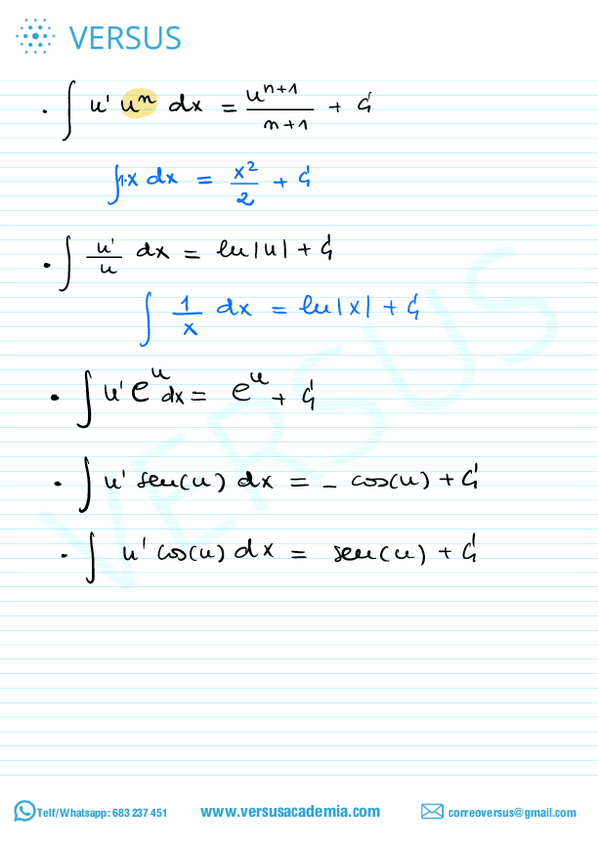 VERSUS
· ∫ u' uⁿ dx = uⁿ⁺¹/n+1 + C
∫1·x dx = x²/2 + C
· ∫ u'/u dx = ln|u| + C
∫ 1/x dx = ln|x| + C
· ∫ u' eᵘ dx = eᵘ + C
· ∫ u' sen(u) dx = - cos(u) + C
· ∫ u' cos(u) dx = sen(u) + C
VERSUS
Telf/Whatsapp: 683 237 451 www.versusacademia.com correoversus@gmail.com